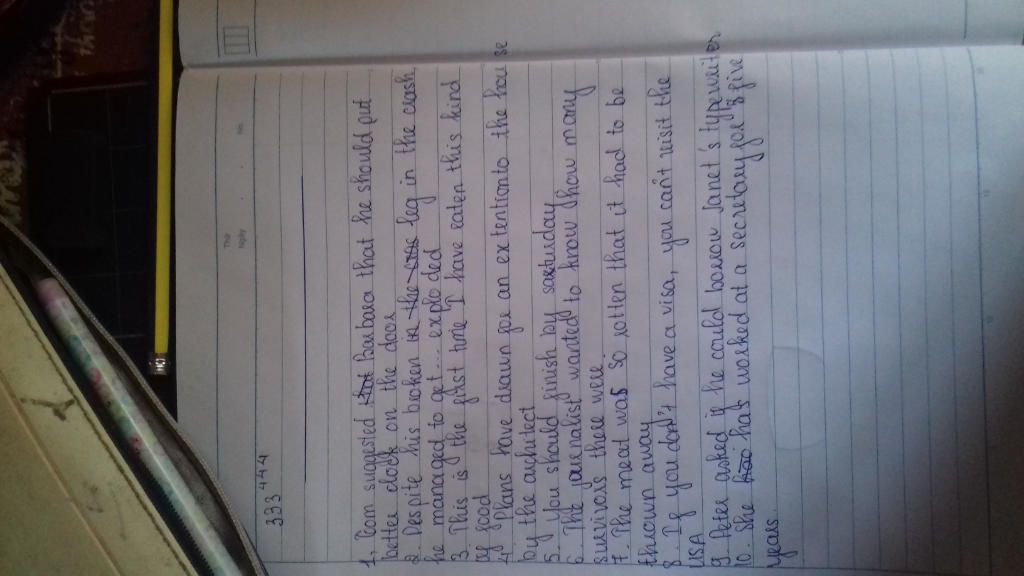 Thứ
Ngày
No.
333⁺⁴⁺⁴
1. Tom suggested that Barbara that he should put
better clock on the door
2. Despite his broken in the cras leg in the crash,
he managed to get... exploded
3. This is the first time I have eaten this kind
of food
4. Plans have drawn for an extentionto the house
by the architect
5. You should finish by saturday
6. The journalist wanted to know show many
survivors there were
7. The meat was so rotten that it had to be
thrown away
8. If you don't have a visa, you can't visit the
USA
9. Peter asked if he could borrow Janet's typewriter
10. She has worked at a secretary for 3 five
years